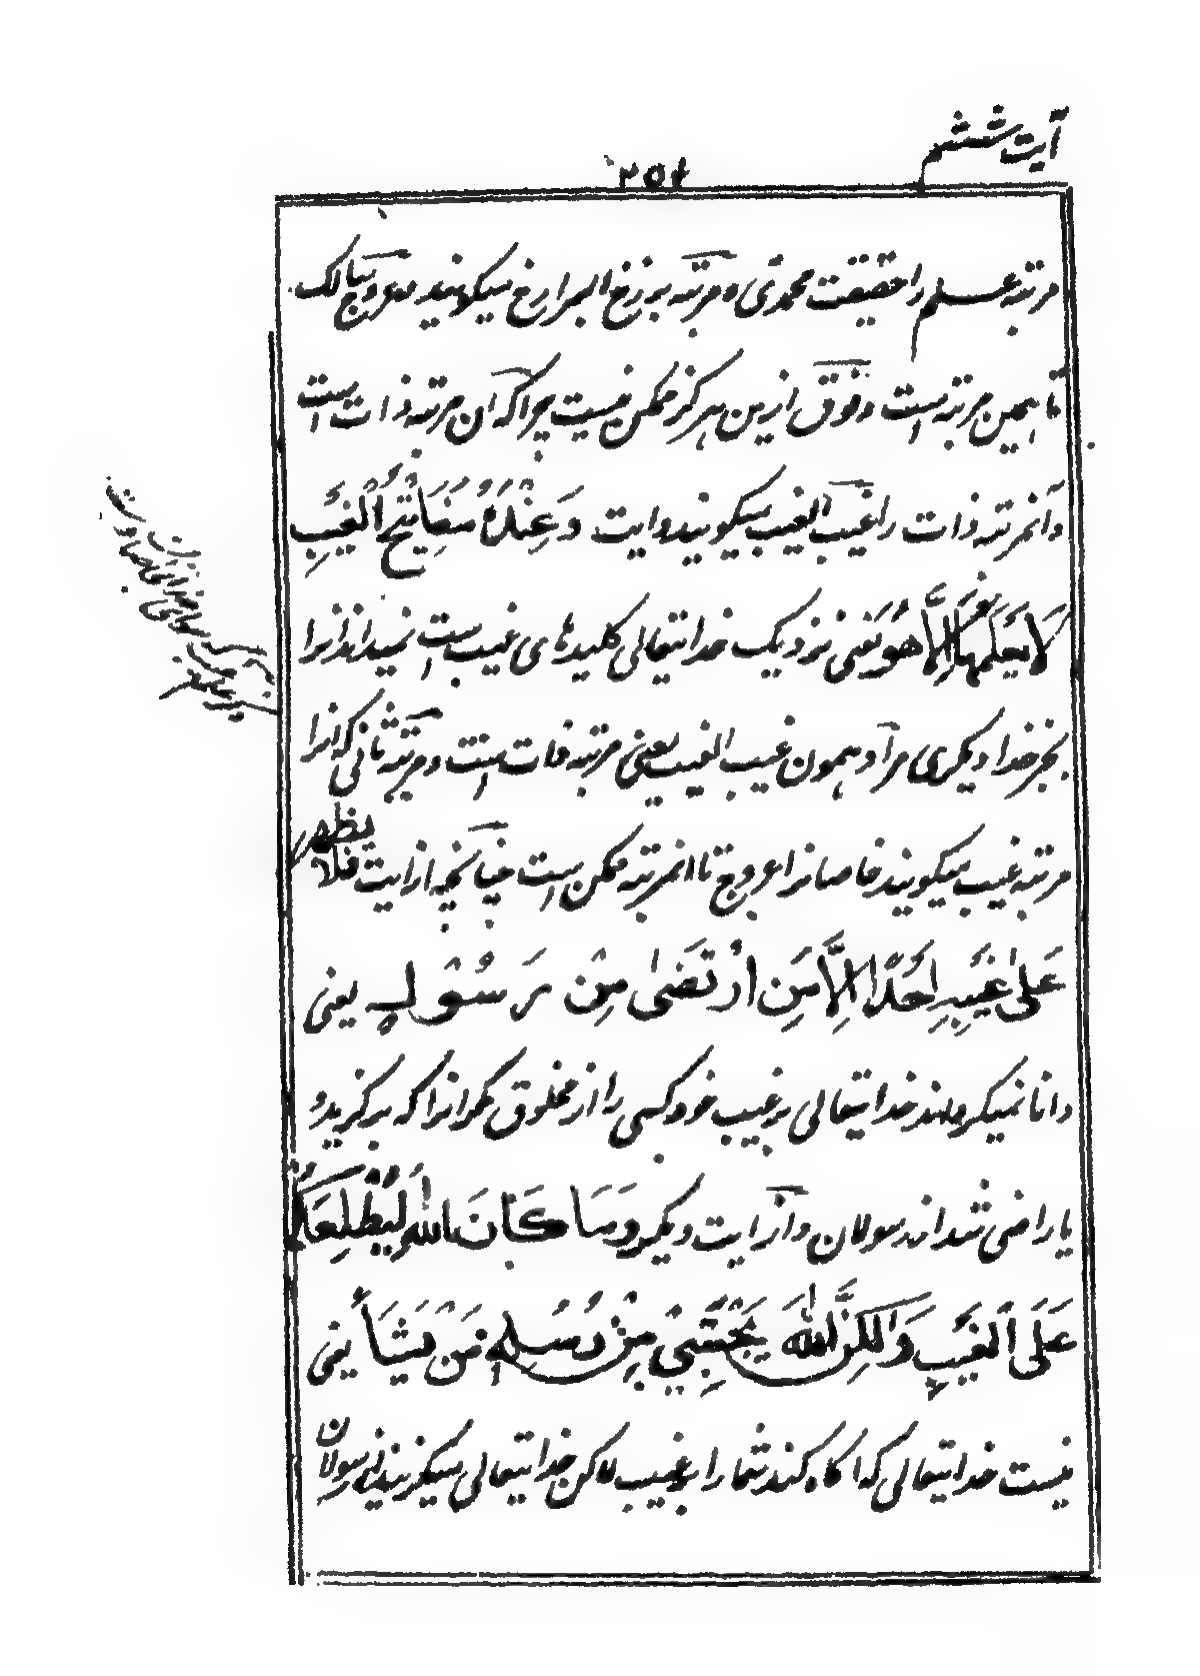 آیت ششم
۲۵۴
مرتبه علم را حقیقت محمدی و مرتبه برزخ البرازخ میگویند و عروج سالک
تا همین مرتبه است و فوق ازین هرگز ممکن نیست چرا که آن مرتبه ذات است
و آنمرتبه ذات را غیب الغیب میگویند و ایت وَعِنْدَهُ مَفَاتِیحُ الْغَیْبِ
لَا یَعْلَمُهَا اِلَّا هُوَ یعنی نزدیک خدایتعالی کلیدهای غیب است نمیداند آنرا
بجز خدا دیگری مراد همون غیب الغیب یعنی مرتبه ذات است و مرتبه ثانی که آنرا
مرتبه غیب میگویند خاصانرا عروج تا انمرتبه ممکن است چنانچه از ایت فلا یظهر
عَلیٰ غَیْبِهِ اَحَدًا اِلَّا مَنِ ارْتَضیٰ مِنْ رَسُوْلٍ یعنی
دانا نمیگرداند خدایتعالی بر غیب خود کسی را از مخلوق مگر انرا که برگزیدو
یا راضی شد از رسولان و از ایت دیگر وَمَا کَانَ اللهُ لِیُطْلِعَکُمْ
عَلَی الْغَیْبِ وَلٰکِنَّ اللهَ یَجْتَبِیْ مِنْ رُسُلِهٖ مَنْ یَشَآءُ یعنی
نیست خدایتعالی که اگاه کند شما را بر غیب لاکن خدایتعالی میگزیند از رسولان